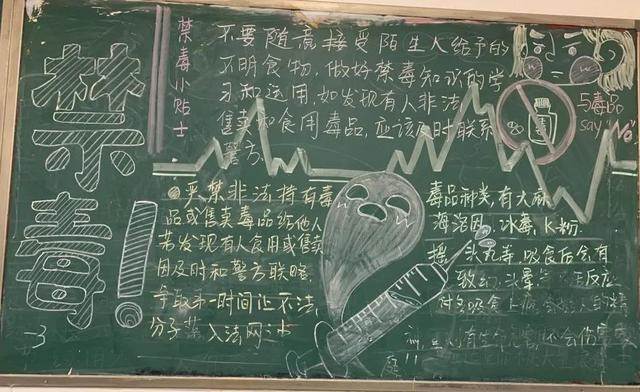 禁毒!
禁毒小贴士
不要随意接受陌生人给予的
不明食物，做好禁毒知识的学
习和运用，如发现有人非法
售卖和食用毒品，应该及时联系
警方
与毒品
say "No"
毒
严禁非法持有毒
品或售卖毒品给他人
若发现有人食用或售卖
因及时和警方联络
争取第一时间让不法
分子落入法网
毒品种类，有大麻
海洛因，冰毒，K粉.
摇头丸等，吸食后会有
头晕 反应
还会伤害